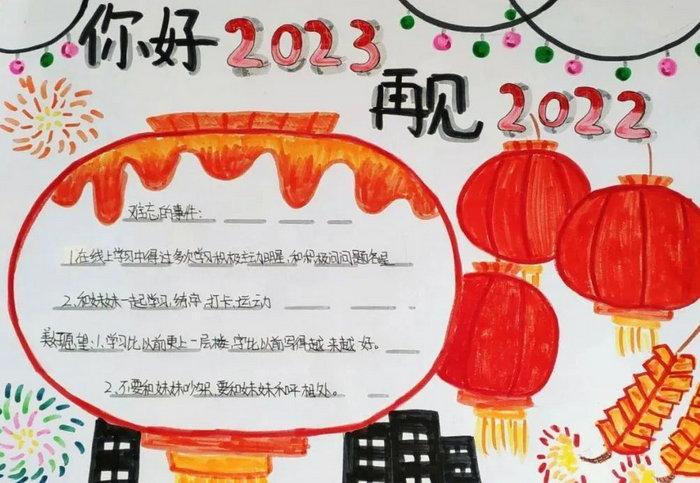 你好2023
再见2022
难忘的事件:
1.在线上学习中得过多次学习积极主动明星,和积极问问题名星
2、和妹妹一起学习、练字、打卡、运动
美好愿望:1、学习比以前更上一层楼,字比以前写得越来越好。
2、不要和妹妹吵架,要和妹妹和平相处。